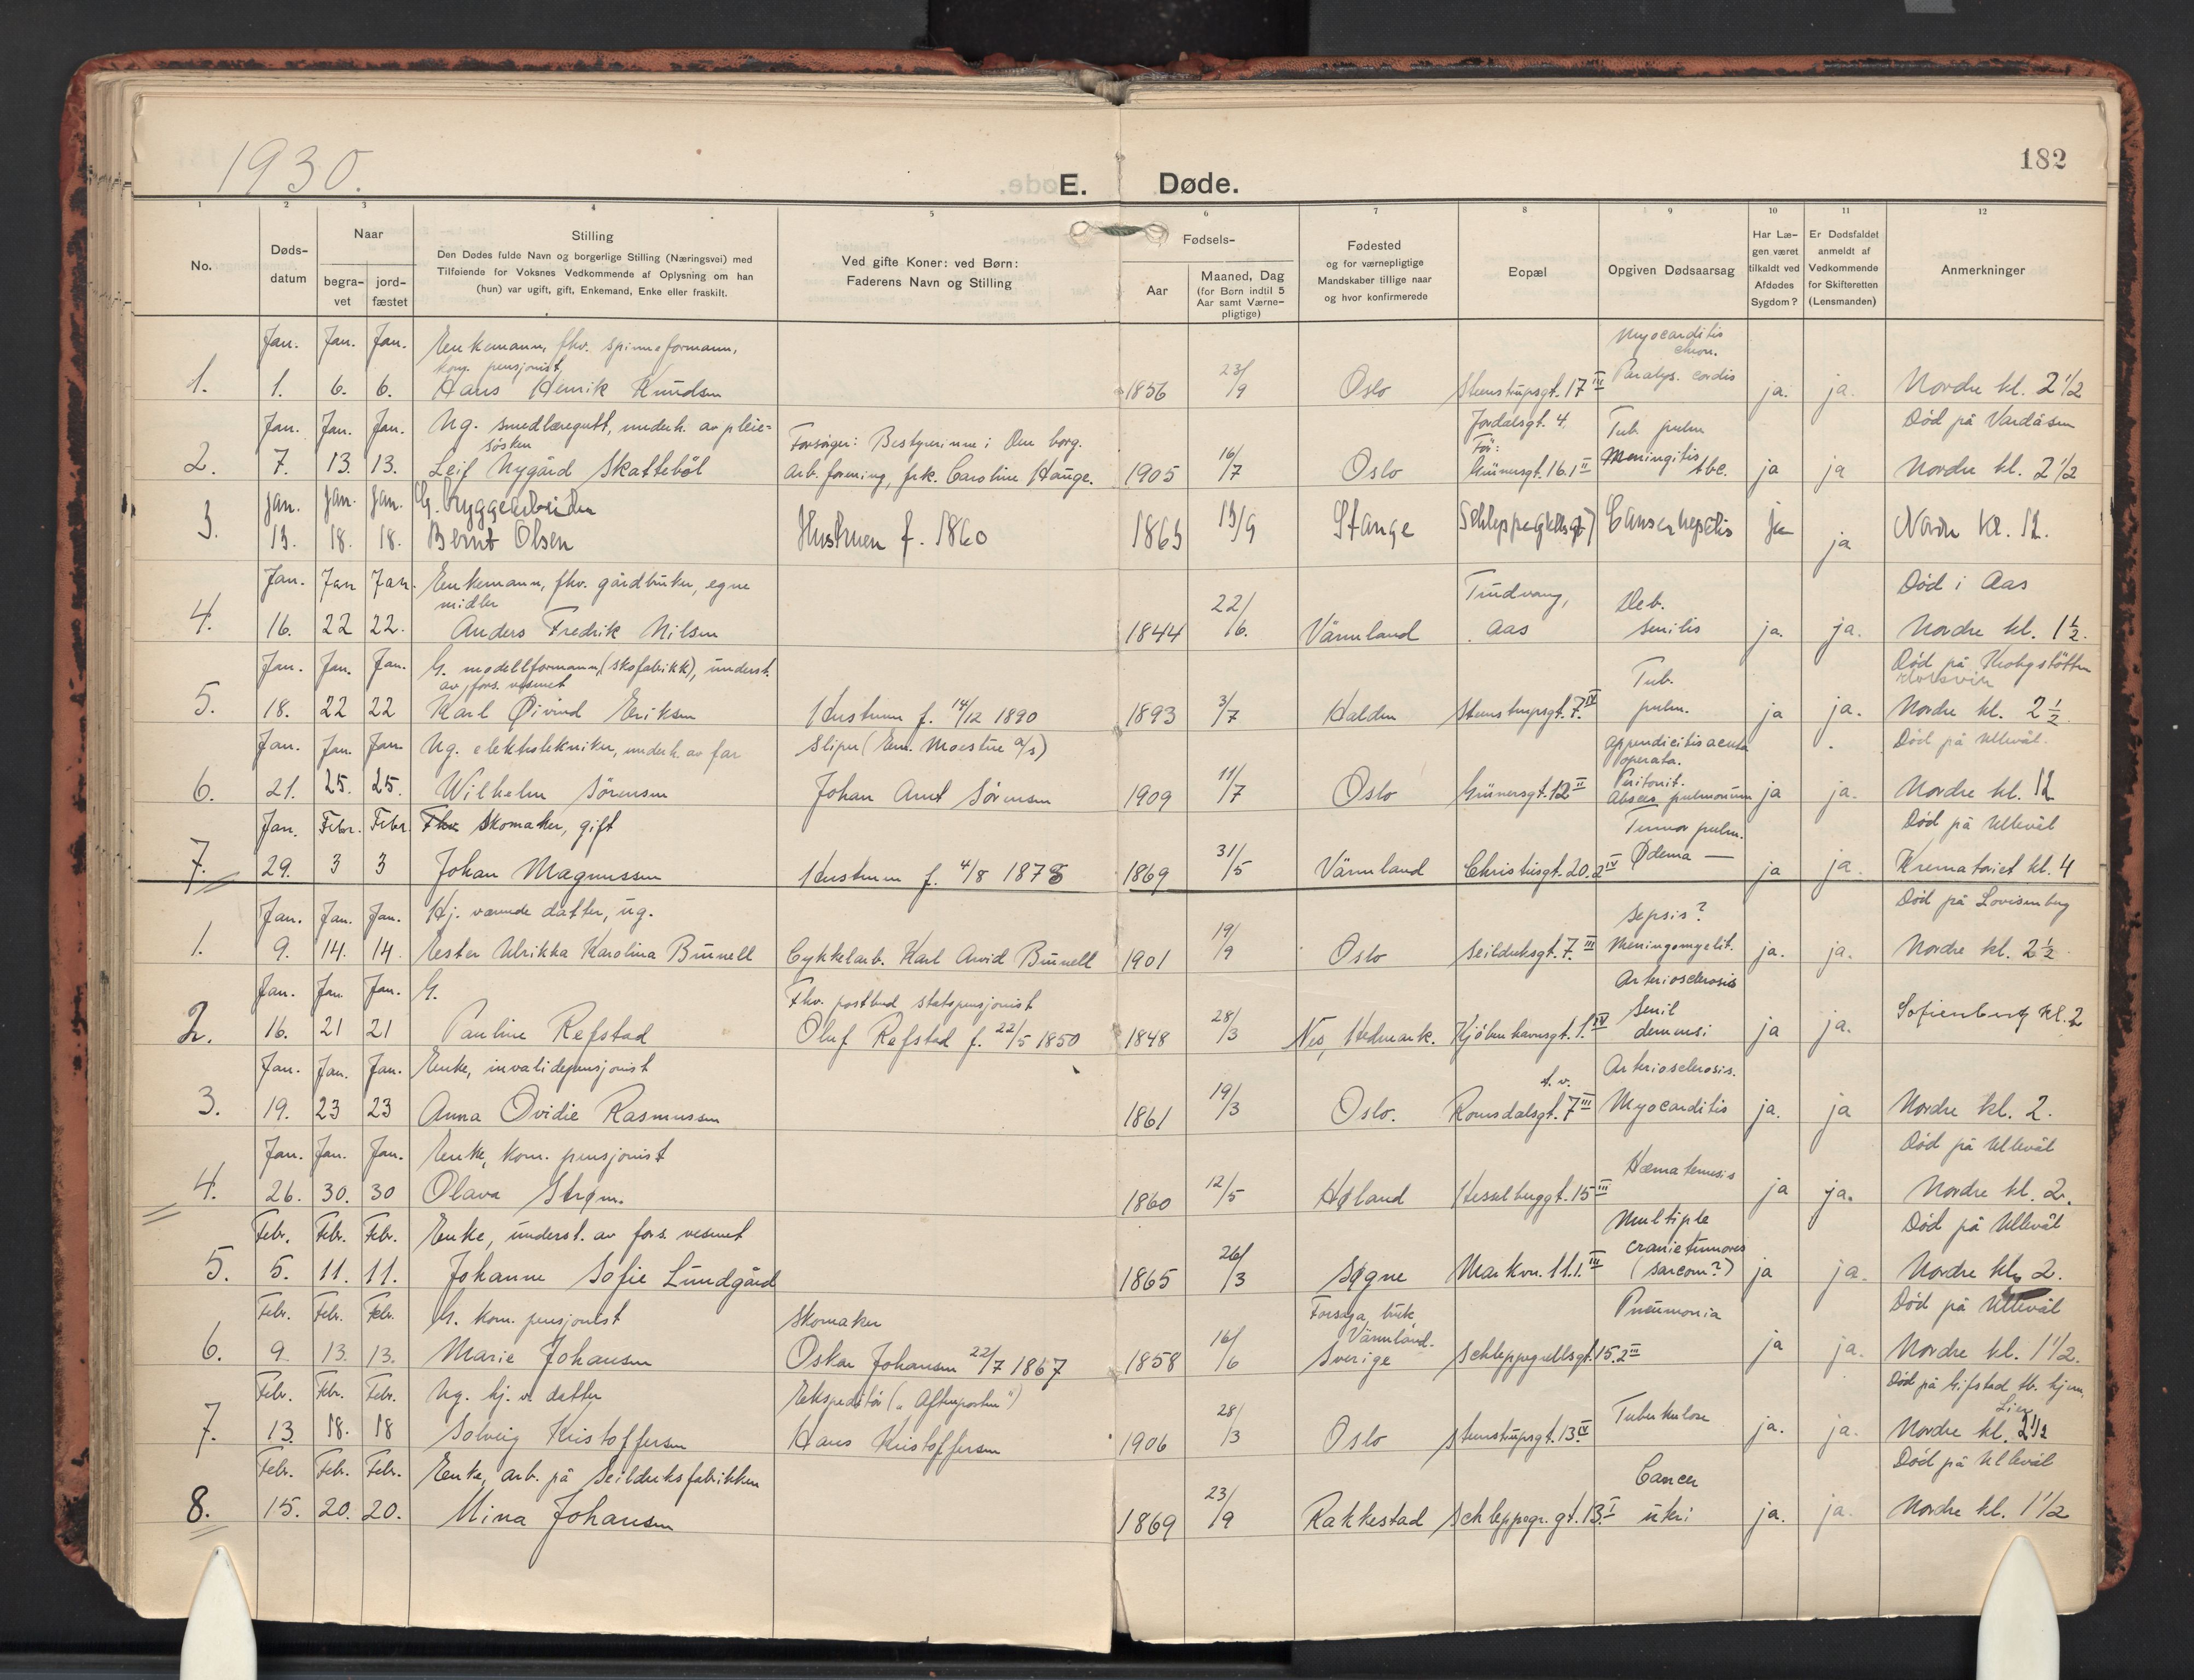 1930.
E. Døde.
182
1 2 3 4 5 6 7 8 9 10 11 12
No.
Døds-
datum
Naar
begra-
vet
jord-
fæstet
Stilling
Den Dødes fulde Navn og borgerlige Stilling (Næringsvei) med
Tilføiende for Voksnes Vedkommende af Oplysning om han
(hun) var ugift, gift, Enkemand, Enke eller fraskilt.
Ved gifte Koner: ved Børn:
Faderens Navn og Stilling
Fødsels-
Aar
Maaned, Dag
(for Børn indtil 5
Aar samt Værne-
pligtige)
Fødested
og for værnepligtige
Mandskaber tillige naar
og hvor konfirmerede
Bopæl
Opgiven Dødsaarsag
Har Læ-
gen været
tilkaldt ved
Afdødes
Sygdom?
Er Dødsfaldet
anmeldt af
Vedkommende
for Skifteretten
(Lensmanden)
Anmerkninger
Jan. Jan. Jan. Enkemann, fhv. spinneformann, Myocarditis
kom. pensjonist, chron.
1. 1. 6. 6. Hans Henrik Knudsen 1856 23/9 Oslo Steenstrupsgt. 17 III Paralys. cordis ja. ja. Nordre kl. 2 1/2
Jan. Jan. Jan. Ug. smedlæregutt, underh. av pleie- Jordalsgt. 4. Tub. pulm Død på Vardåsen
søsken Forsørger: Bestyrerinne i Den borg. Før:
2. 7. 13. 13. Leif Nygård Skattebøl arb. forening, frk. Caroline Hauge. 1905 16/7 Oslo Grünersgt. 16.1 II Meningitis tbc. ja ja Nordre kl. 2 1/2
Jan. Jan. Jan. G. bryggearbeider
3. 13. 18. 18. Bernt Olsen Hustruen f. 1860 1863 13/9 Stange Cancer hepatis ja ja Nordre kl. 12.
Jan. Jan Jan. Enkemann, fhv. gårdbruker, egne Deb. Død i Aas
midler
4. 16. 22 22. Anders Fredrik Nilsen 1844 22/6. Värmland Aas senilis ja. ja. Nordre kl. 1 1/2.
Jan. Jan. Jan. G. modellformann (skofabrikk), underst. Tub. Død på
av fors. vesenet
5. 18. 22 22 Karl Øivind Eriksen Hustruen f. 14/12 1890 1893 3/7 Halden Steenstrupsgt. 7. IV pulm. ja ja. Nordre kl. 2 1/2
Jan. Jan. Jan. Ug. elektrotekniker, underh. av far Sliper (Em. Moestue a/s) appendicitis acuta Død på Ullevål.
operata.
Peritonit.
6. 21. 25. 25. Wilhelm Sørensen Johan Arnt Sørensen 1909 11/7 Oslo Grünersgt. 12 II Absces pulmonum ja ja. Nordre kl. 12
Jan. Febr. Febr. Fhv. Skomaker, gift Tumor pulm. Død på Ullevål
7. 29. 3 3 Johan Magnussen Hustruen f. 4/8 1878 1869 31/5 Värmland Christiesgt. 20. 2 IV Ødema — ja ja. Krematoriet kl. 4
Jan. Jan. Jan. Hj. værende datter, ug. Sepsis? Død på Lovisenberg
1. 9. 14. 14. Ester Ulrikka Karolina Brunell Cykkelarb. Karl Arvid Brunell 1901 19/9 Oslo Seilduksgt. 7. III Meningomyelit. ja. ja. Nordre kl. 2 1/2
Jan. Jan. Jan. G. Fhv. postbud, statspensjonist Arteriosclerosis
Senil
2. 16. 21 21 Pauline Refstad Oluf Refstad f. 22/5 1850 1848 28/3 Nes, Hedmark. Kjøbenhavnsgt. 1. IV demensi ja ja. Sofienberg kl. 2
Jan. Jan. Jan. Enke, invalidepensjonist Arteriosclerosis.
3. 19. 23 23 Anna Ovidie Rasmussen 1861 19/3 Oslo. Romsdalsgt. 7 III Myocarditis ja. ja Nordre kl. 2.
Jan. Jan. Jan. Enke, kom. pensjonist Død på Ullevål
4. 26. 30. 30 Olava Strøm. 1860 12/5 Høland Hesselbergsgt. 15 III Hæmatemesis ja ja. Nordre kl. 2.
Febr. Febr. Febr. Enke, underst. av fors. vesenet Multiple Død på Ullevål
cranietumores
5. 5. 11. 11. Johanne Sofie Lundgård 1865 26/3 Søgne Markvn. 11.1. III (sarcom?) ja ja. Nordre kl. 2.
Febr. Febr. Febr. G. kom. pensjonist Skomaker Forsaga, bruk, Pneumonia Død på Ullevål
Värmland.
6. 9 13. 13. Marie Johansen Oskar Johansen 22/7 1867 1858 16/6 Sverige Schleppegrellsgt. 15. 2 III ja ja. Nordre kl. 1 1/2.
Febr. Febr. Febr. Ug. hj. v. datter Ekspeditør ("Aftenposten") Død på Gifstad tb. hjem,
Lier
7. 13. 18. 18 Solveig Kristoffersen Hans Kristoffersen 1906 28/3 Oslo Steenstrupsgt. 13. IV Tuberkulose ja. ja. Nordre kl. 2 1/2
Febr. Febr. Febr. Enke, arb. på Seilduksfabrikken Cancer Død på Ullevål
8. 15. 20. 20. Mina Johansen 1869 23/9 Rakkestad Schleppegr. gt. 13. I uteri ja. ja. Nordre kl. 1 1/2